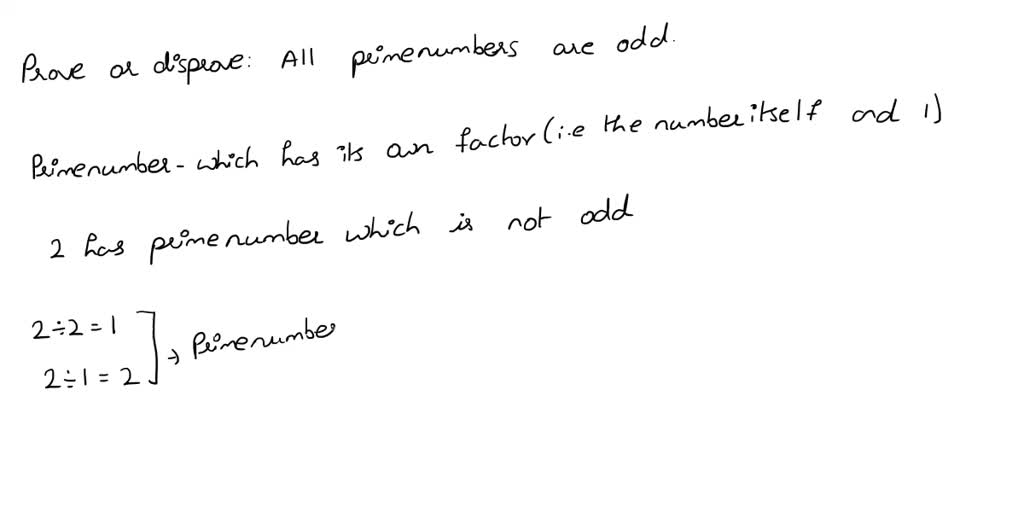 Prove or disprove: All primenumbers are odd.
Primenumber - which has its own factor (i.e the number itself and 1)
2 has prime number which is not odd
2÷2 = 1
→ Primenumber
2÷1 = 2